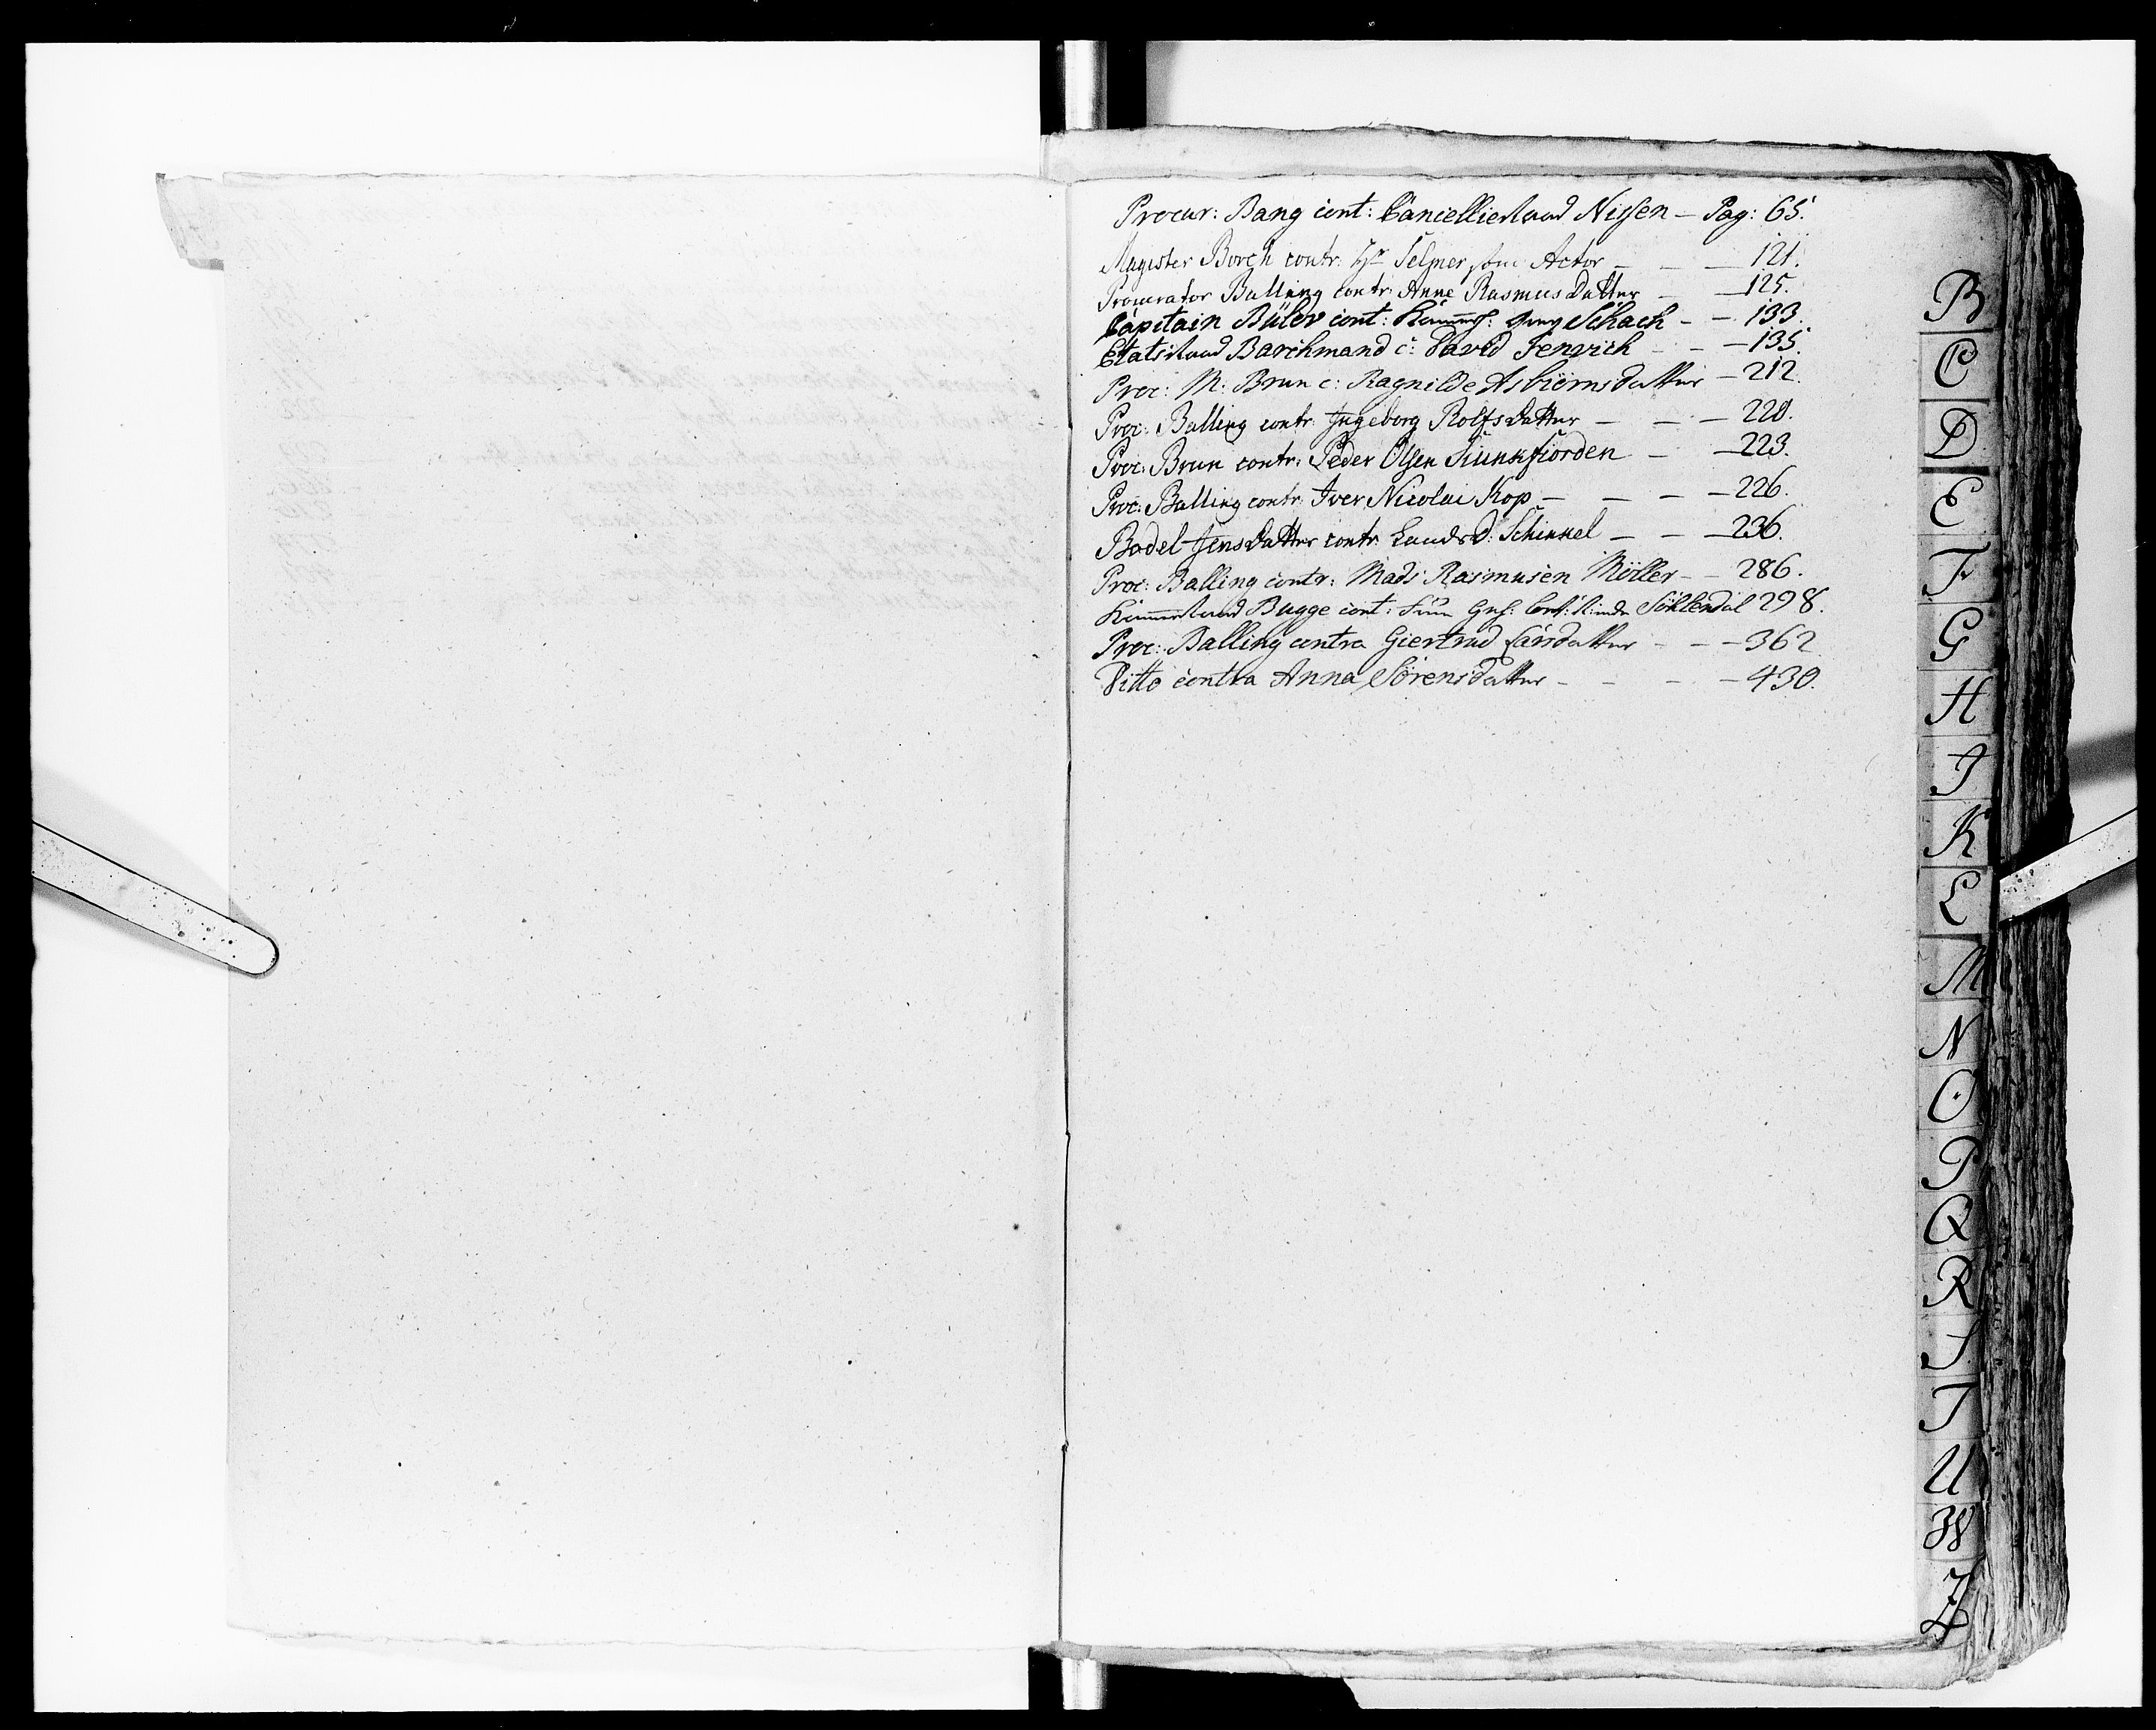 Procur: Bang cont: Cancellieraad Nissen — Pag: 65.
Magister Borch contr: Hr Selmer som Actor — — — 121.
Procurator Balling contr: Anne Rasmus Datter — — 125.
Capitain Bülov cont: Schach — — 133.
Etatsraad Barchmand c: David Fenvich — — 135.
Proc: M: Brun c: Ragnilde Asbiörnsdatter — 212.
Proc: Balling contr: Ingeborg Rolfsdatter — — — 220.
Proc: Brun contr: Peder Olsen — — 223.
Proc: Balling contr: Iver Nicolai Kop — — — — 226.
Bodel Jensdatter contr: Landsd: Schinkel — — — 236.
Proc: Balling contr: Mads Rasmusen Möller — — 286.
Kammerraad Bugge cont: 298.
Proc: Balling contra Giertrud Larsdatter — — — 362
Ditto contra Anna Sörensdatter — — — — 430.
B
C
D
E
F
G
H
I
K
L
M
N
O
P
Q
R
S
T
U
W
Z